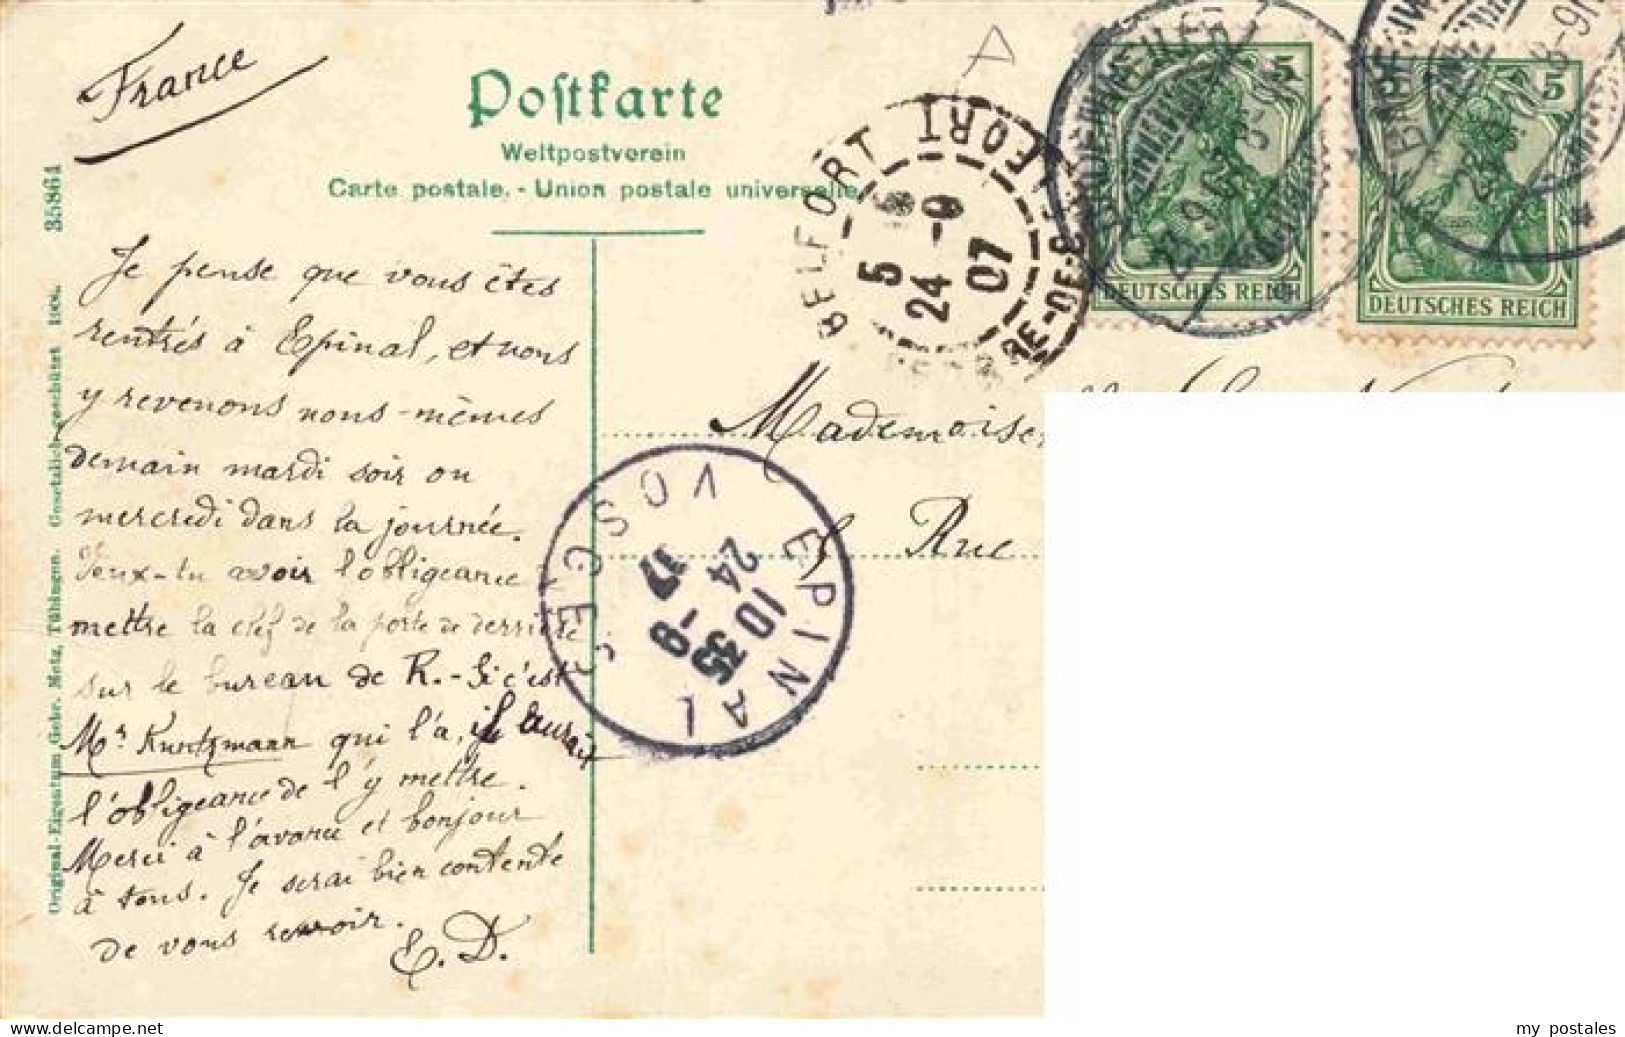 France
Poſtkarte
Weltpostverein
Carte postale. - Union postale universelle
5
5
DEUTSCHES REICH
DEUTSCHES REICH
BELFORT
5
24 -9
07
EPINAL
VOSGES
10 35
24 -9
Je pense que vous êtes
rentrés à Epinal, et nous
y revenons nous-mêmes
demain mardi soir ou
mercredi dans la journée.
Veux-tu avoir l'obligeance
mettre la clef de la porte de derrière
sur le bureau de R. - Si c'est
Mr Kuntzmann qui l'a, il aurait
l'obligeance de l'y mettre.
Merci à l'avance et bonjour
à tous. Je serai bien contente
de vous revoir.
E. D.
Mademoise
Rue
Original-Eigentum Gebr. Metz, Tübingen. Gesetzlich geschützt 35864
www.delcampe.net
my postales